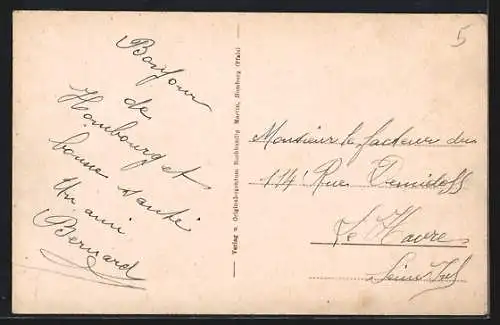 Bonjour
de
Hombourg et
bonne santé
Un ami
Bernard
Verlag u. Originalaufnahme Buchhandlg Martin, Homburg (Pfalz)
5
Monsieur le facteur du
114 Rue Demidoff
Le Havre
Seine Inf